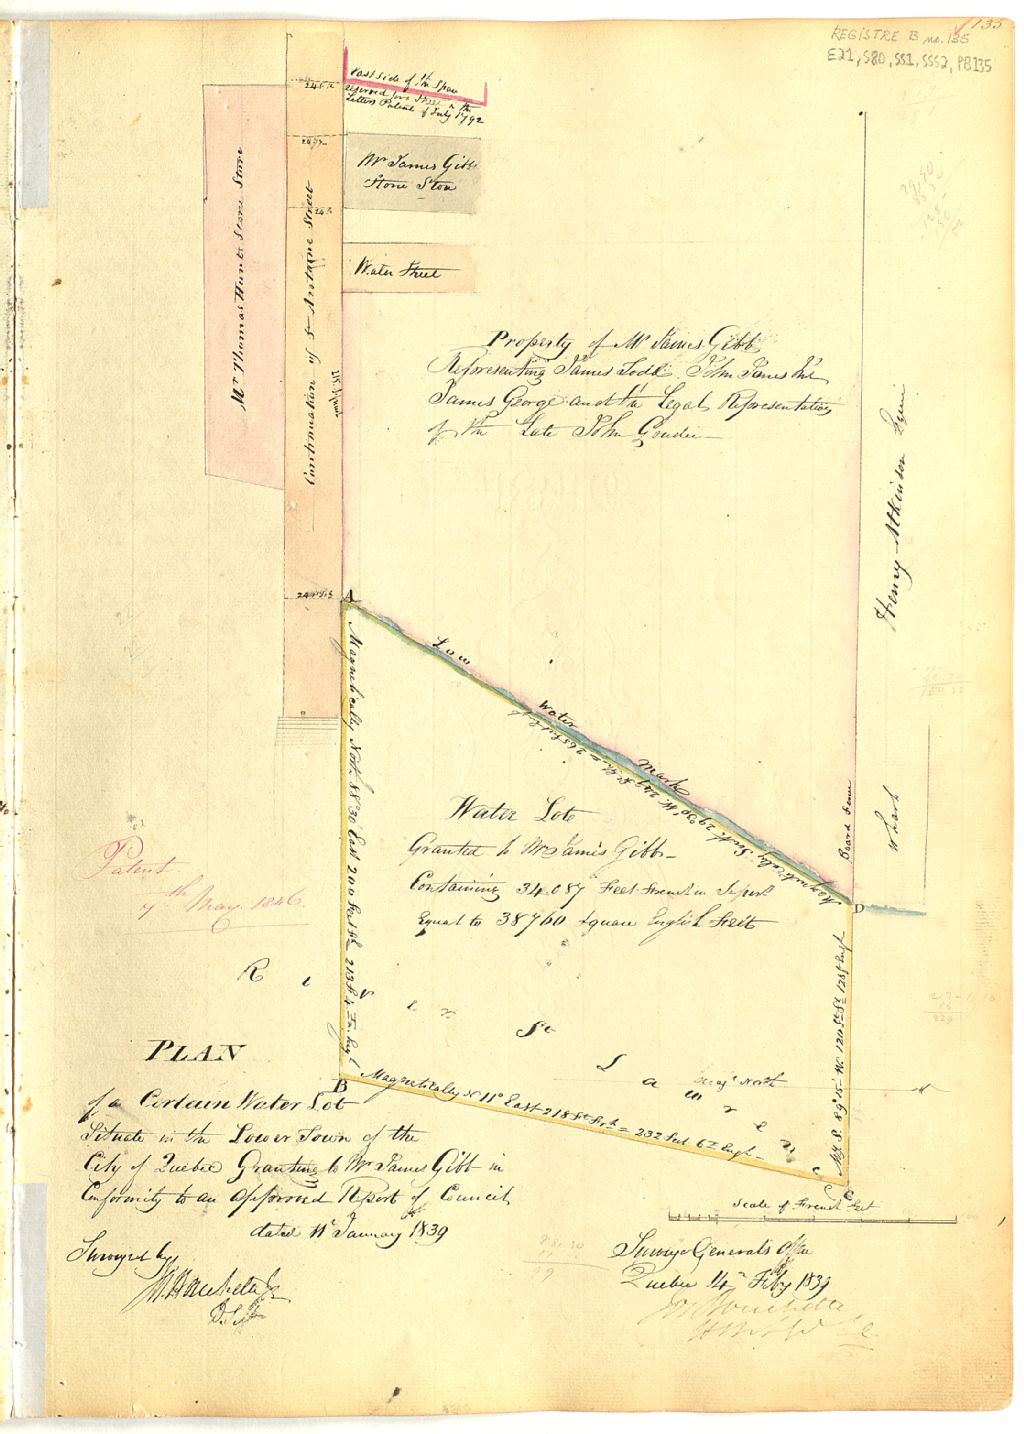 135
REGISTRE B no. 135
E21, S80, SS1, SSS2, PB135
East side of the Space
reserved for a Street in the
Letters Patent of July 1792
Mr James Gibb
Stone Store
Water Street
Mr Thomas Hunts Stone Store
Continuation of St Antoine Street
Property of Mr James Gibb
Representing James Todd, John Jones
James George and the Legal Representatives
of the Late John Goudie
Henry Atkinson
Wharf
Board Fence
A
Low Water Mark
D
Water Lot
Granted to Mr James Gibb
Containing 34.087 Feet French in Superf
Equal to 38760 Square English Feet
Magnetically North 88°30 East 200
Patent
7th May 1846
River St Lawrence
B
Magnetically N 11° East 218 = 232 Feet 6 In Engl
C
PLAN
of a Certain Water Lot
Situate in the Lower Town of the
City of Quebec Granting to Mr James Gibb in
Conformity to an Approved Report of Council
dated 11th January 1839
Surveyed by
Scale of French Feet
Surveyor Generals Office
Quebec 14th Feby 1839